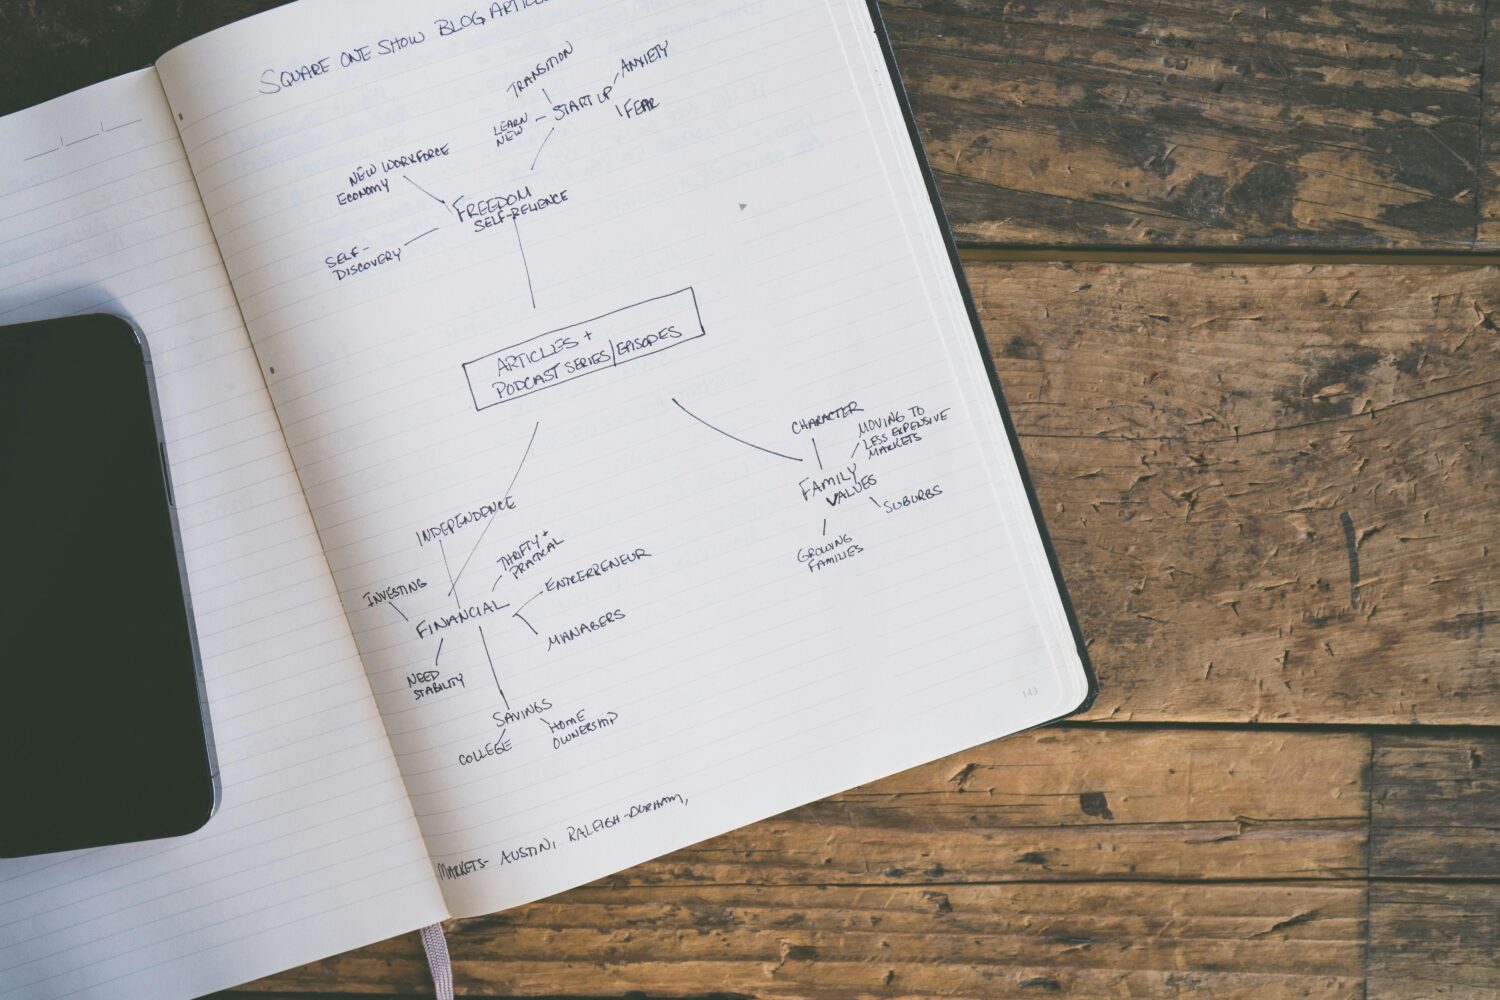 SQUARE ONE SHOW BLOG
TRANSITION
ANXIETY
START UP
FEAR
LEARN
NEW
NEW WORKFORCE
ECONOMY
FREEDOM
SELF-RELIENCE
SELF-
DISCOVERY
ARTICLES +
PODCAST SERIES/EPISODES
CHARACTER
MOVING TO
LESS EXPENSIVE
MARKETS
FAMILY
VALUES
SUBURBS
GROWING
FAMILIES
INDEPENDENCE
THRIFTY +
PRATICAL
ENTRERPRENEUR
INVESTING
FINANCIAL
MANAGERS
NEED
STABILITY
SAVINGS
HOME
OWNERSHIP
COLLEGE
MARKETS- AUSTIN, RALEIGH-DURHAM,